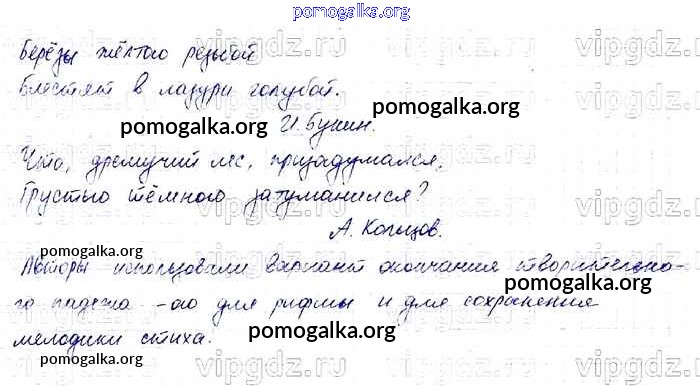 pomogalka.org
Берёзы жёлтою резьбой
блестят в лазури голубой.
pomogalka.org
pomogalka.org И. Бунин.
Что, дремучий лес, призадумался,
Грустью тёмною затуманился?
А. Кольцов.
pomogalka.org
Авторы использовали вариант окончания творительно-
го падежа -ою для рифмы и для сохранения
pomogalka.org
мелодики стиха.
pomogalka.org
vipgdz.ru
vipgdz.ru
vipgdz.ru
vipgdz.ru
vipgdz.ru
vipgdz.ru